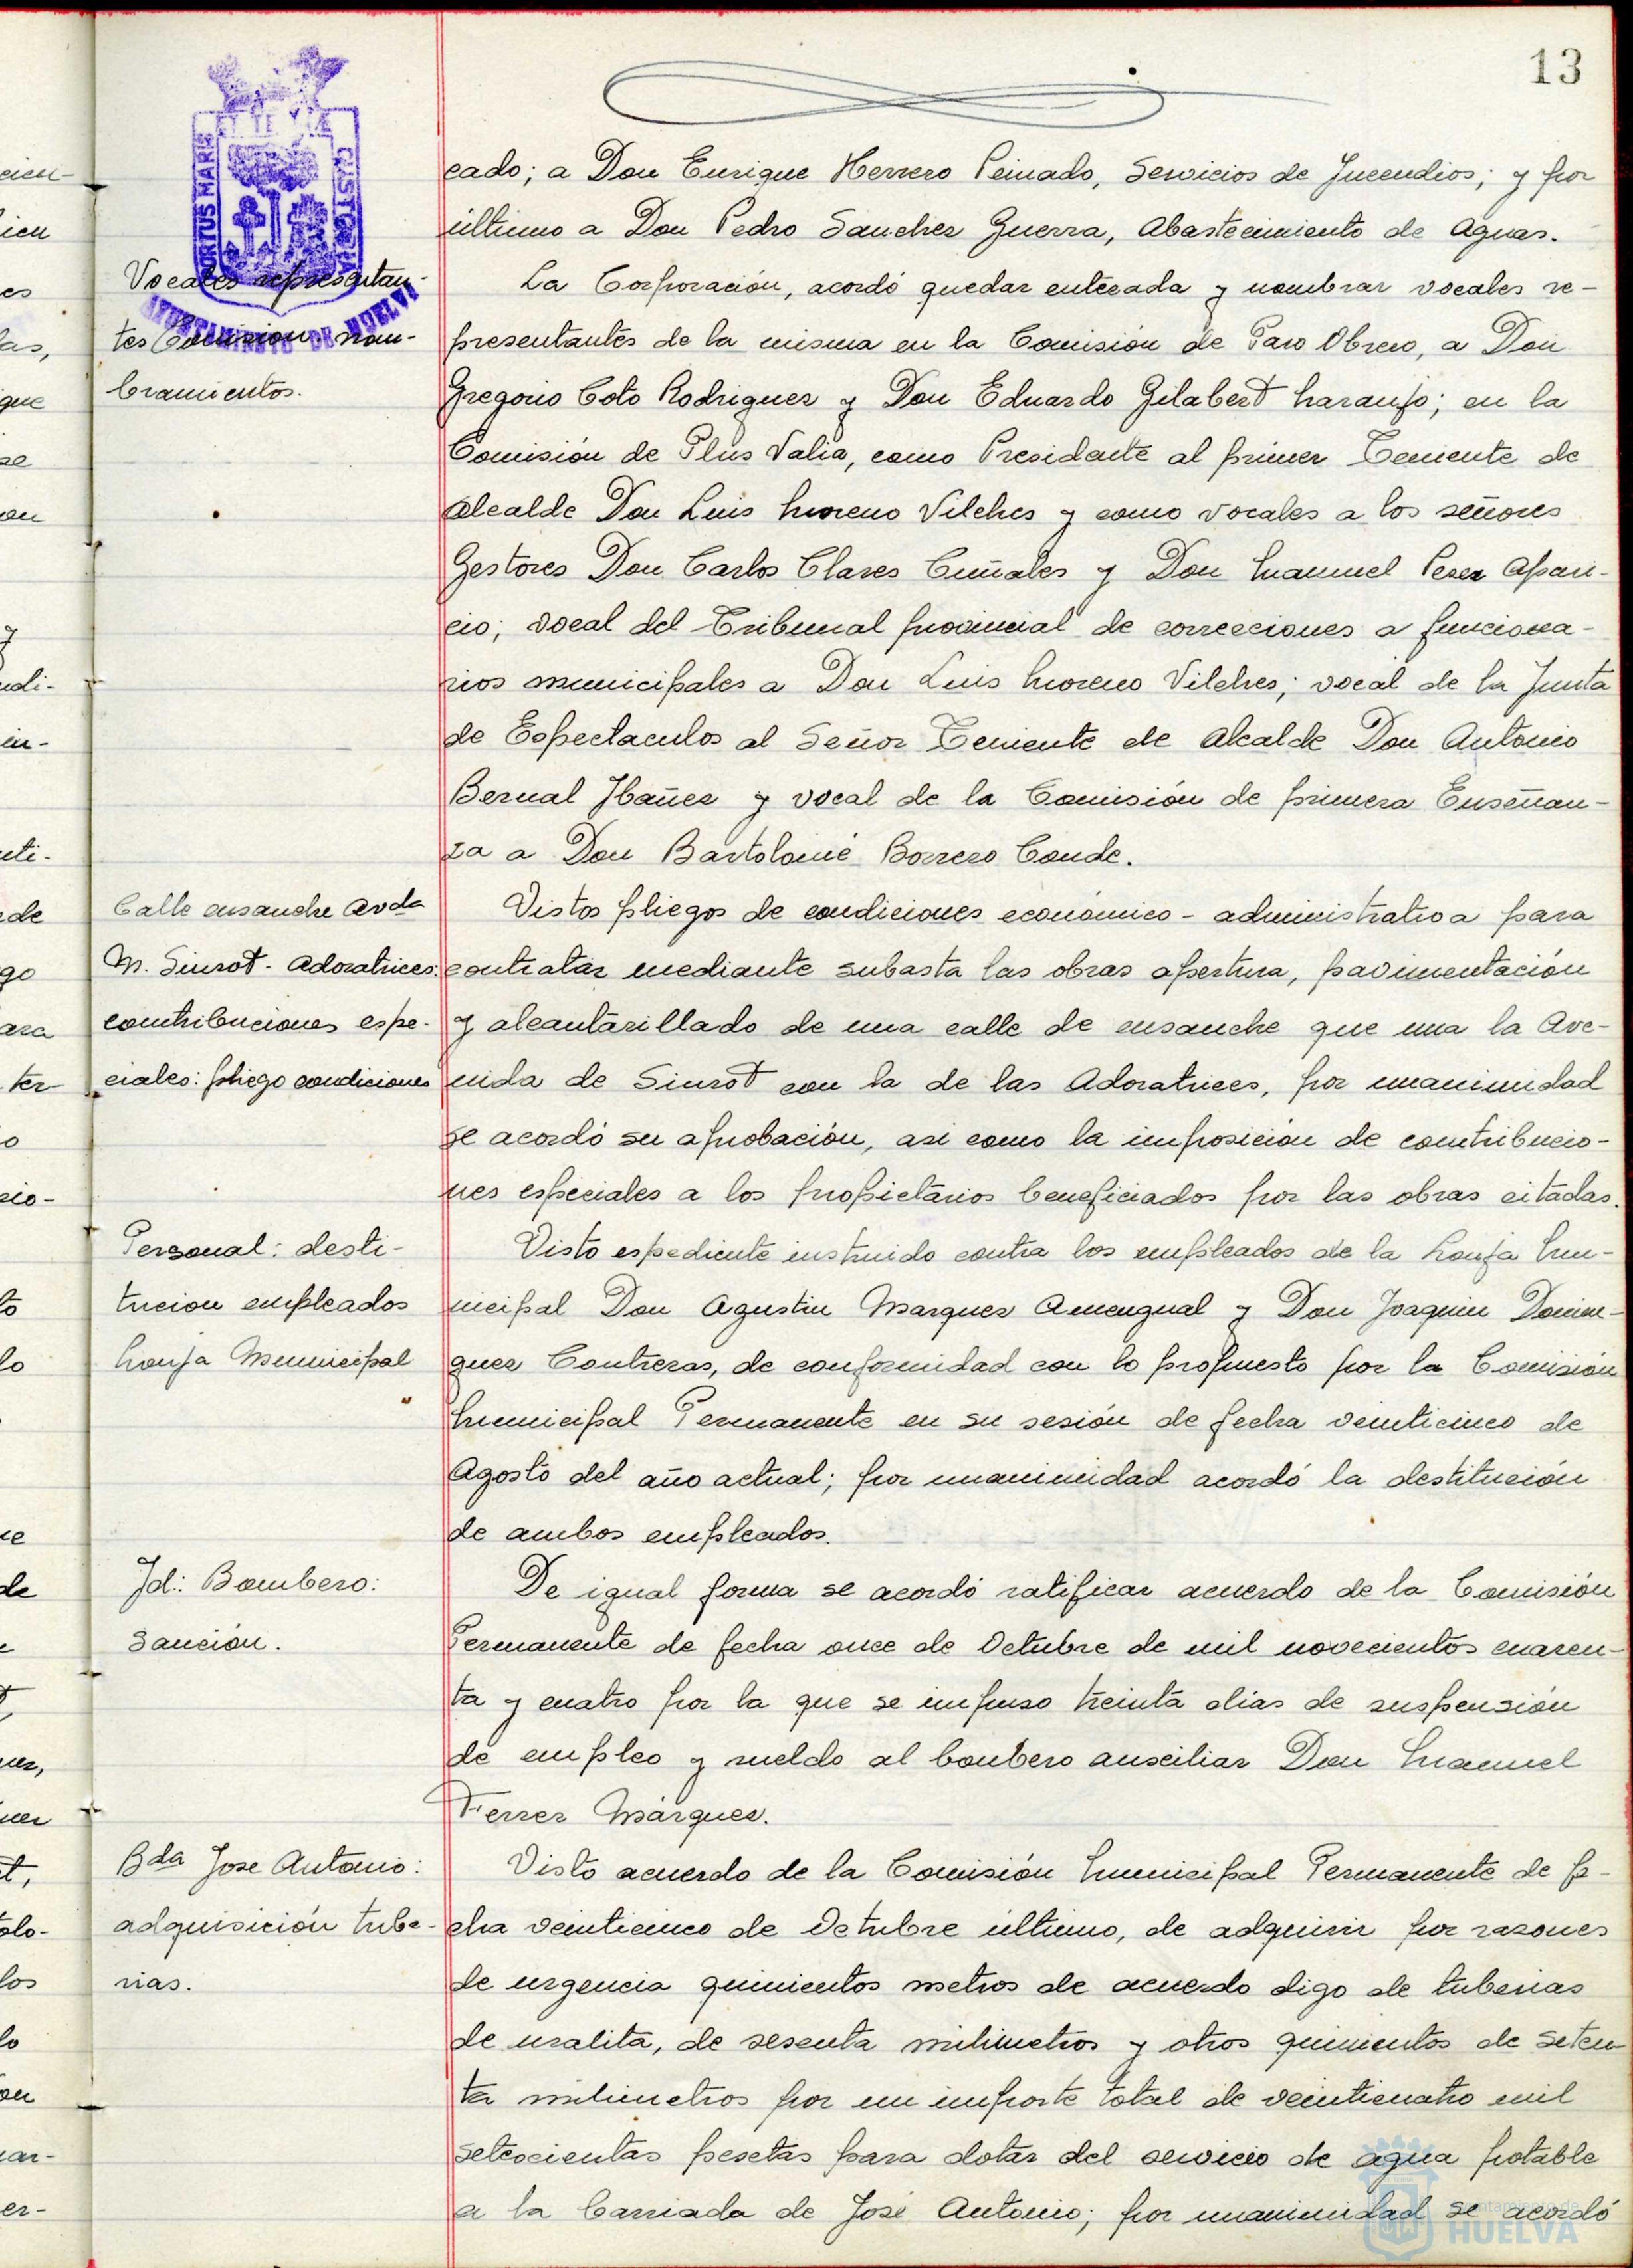 13
PORTUS MARIS
ET TERRE
CUSTODIA
AYUNTAMIENTO DE HUELVA
cado; a Don Enrique Herrero Peinado, Servicios de Incendios; y por
último a Don Pedro Sanchez Guerra, Abastecimiento de Aguas.
Vocales represntan-
tes Comision: nom-
bramientos.
La Corporación, acordó quedar enterada y nombrar vocales re-
presentantes de la misma en la Comisión de Paro Obrero, a Don
Gregorio Coto Rodriguez y Don Eduardo Gilabert Naranjo; en la
Comisión de Plus Valia, como Presidente al primer Teniente de
Alcalde Don Luis Moreno Vilches y como vocales a los señores
Gestores Don Carlos Clares Cuñales y Don Manuel Perez Apari-
cio; vocal del Tribunal provincial de correcciones a funciona-
rios municipales a Don Luis Moreno Vilches; vocal de la Junta
de Espectaculos al Señor Teniente de Alcalde Don Antonio
Bernal Ibañez y vocal de la Comisión de primera Enseñan-
za a Don Bartolomé Borrero Conde.
Calle ensanche Avda
M. Siurot - Adoratrices:
contribuciones espe-
ciales: pliego condiciones
Vistos pliegos de condiciones económico-administrativa para
contratar mediante subasta las obras apertura, pavimentación
y alcantarillado de una calle de ensanche que una la Ave-
nida de Siurot con la de las Adoratrices, por unanimidad
se acordó su aprobación, asi como la imposición de contribucio-
nes especiales a los propietarios beneficiados por las obras citadas.
Personal: desti-
tucion empleados
Lonja Municipal
Visto espediente instruido contra los empleados de la Lonja Mu-
nicipal Don Agustin Marquez Amengual y Don Joaquin Domin-
guez Contreras, de conformidad con lo propuesto por la Comisión
Municipal Permanente en su sesión de fecha veinticinco de
Agosto del año actual; por unanimidad acordó la destitución
de ambos empleados.
Id: Bombero:
Sanción.
De igual forma se acordó ratificar acuerdo de la Comisión
Permanente de fecha once de Octubre de mil novecientos cuaren-
ta y cuatro por la que se impuso treinta dias de suspensión
de empleo y sueldo al bombero auxiliar Don Manuel
Ferrer Márquez.
Bda Jose Antonio:
adquisición tube-
rias.
Visto acuerdo de la Comisión Municipal Permanente de fe-
cha veinticinco de Octubre último, de adquirir por razones
de urgencia quinientos metros de acuerdo digo de tuberias
de uralita, de sesenta milimetros y otros quinientos de seten-
ta milimetros por un importe total de veinticuatro mil
setecientas pesetas para dotar del servicio de agua potable
a la Barriada de José Antonio; por unanimidad se acordó
Ayuntamiento de
HUELVA